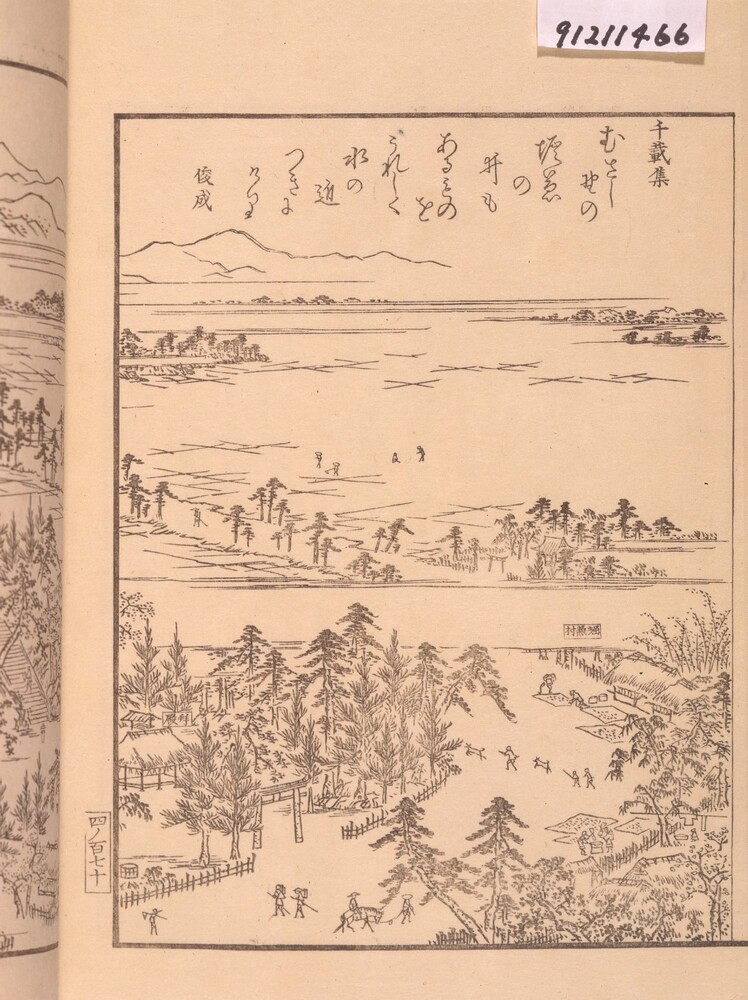 91211466
千載集
むさし野の
堀兼
の
井も
あるものを
うれしく
水の
近
つきに
けり
俊成
堀兼村
拝殿
四ノ百七十